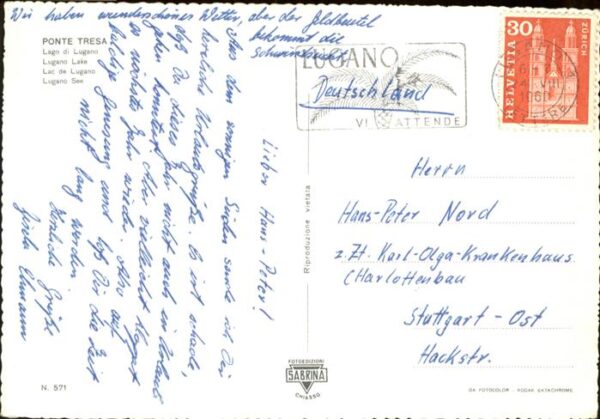 Wir haben wunderschönes Wetter, aber der Geldbeutel
bekommt die
Schwindsucht
PONTE TRESA
Lago di Lugano
Lugano Lake
Lac de Lugano
Lugano See
Lieber Hans-Peter!
Aus dem sonnigen Süden sende ich Dir
herzliche Urlaubsgrüße. Es ist schade,
daß Du dieses Jahr nicht auch in Urlaub
gehen konntest. Aber vielleicht klappt
es nächstes Jahr wieder. Also auf
baldige Genesung und laß Dir die Zeit
nicht lang werden
Herzliche Grüße
LUGANO
VI ATTENDE
Deutschland
30
HELVETIA
ZÜRICH
Herrn
Hans-Peter Nord
z. Zt. Karl-Olga-Krankenhaus
Charlottenbau
Stuttgart-Ost
Hackstr.
Riproduzione vietata
FOTOEDIZIONI
SABRINA
CHIASSO
N. 571
DA FOTOCOLOR - KODAK EKTACHROME